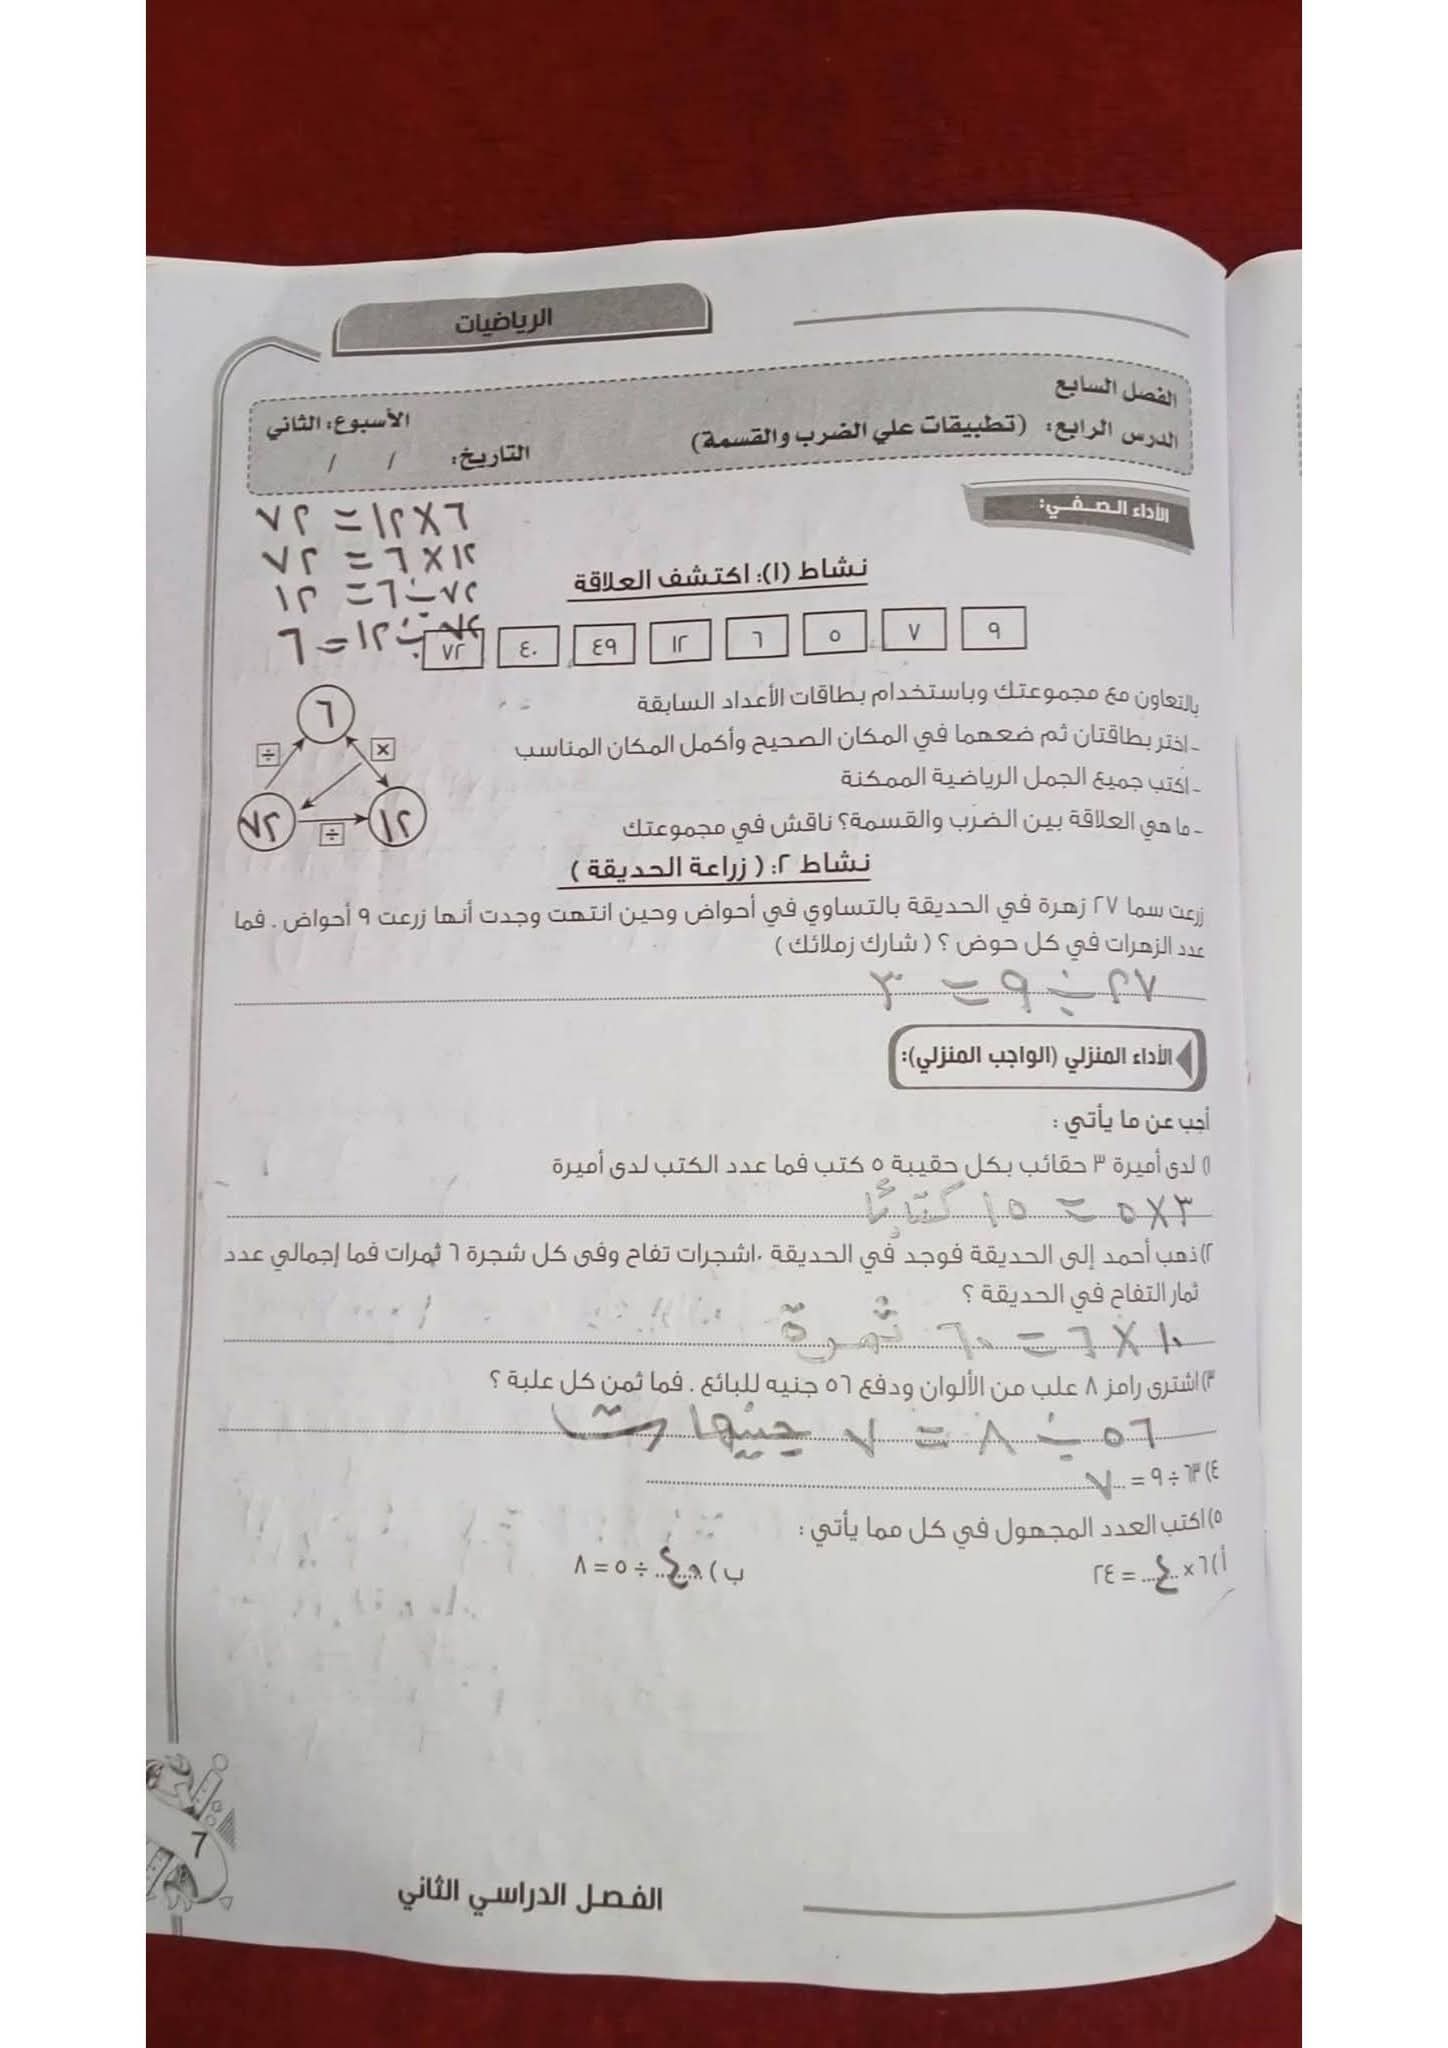 الرياضيات
الفصل السابع
الدرس الرابع: (تطبيقات علي الضرب والقسمة)
الأسبوع: الثاني
التاريخ: / /
الأداء الصفي:
٦ × ١٢ = ٧٢
١٢ × ٦ = ٧٢
٧٢ ÷ ٦ = ١٢
٧٢ ÷ ١٢ = ٦
نشاط (١): اكتشف العلاقة
٩ ٧ ٥ ٦ ١٢ ٤٩ ٤٠ ٧٢
بالتعاون مع مجموعتك وباستخدام بطاقات الأعداد السابقة
- اختر بطاقتان ثم ضعهما في المكان الصحيح وأكمل المكان المناسب
- اكتب جميع الجمل الرياضية الممكنة
- ما هي العلاقة بين الضرب والقسمة؟ ناقش في مجموعتك
٦
× ÷
١٢ ٧٢
÷
نشاط ٢: ( زراعة الحديقة )
زرعت سما ٢٧ زهرة في الحديقة بالتساوي في أحواض وحين انتهت وجدت أنها زرعت ٩ أحواض . فما
عدد الزهرات في كل حوض ؟ ( شارك زملائك )
٢٧ ÷ ٩ = ٣
الأداء المنزلي (الواجب المنزلي):
أجب عن ما يأتي :
١) لدى أميرة ٣ حقائب بكل حقيبة ٥ كتب فما عدد الكتب لدى أميرة
٣ × ٥ = ١٥ كتابًا
٢) ذهب أحمد إلى الحديقة فوجد في الحديقة ١٠شجرات تفاح وفى كل شجرة ٦ ثمرات فما إجمالي عدد
ثمار التفاح في الحديقة ؟
١٠ × ٦ = ٦٠ ثمرة
٣) اشترى رامز ٨ علب من الألوان ودفع ٥٦ جنيه للبائع . فما ثمن كل علبة ؟
٥٦ ÷ ٨ = ٧ جنيهات
٤) ٦٣ ÷ ٩ = ٧
٥) اكتب العدد المجهول في كل مما يأتي :
أ ) ٦ × ٤ = ٢٤
ب ) ٤٠ ÷ ٥ = ٨
7
الفصل الدراسي الثاني